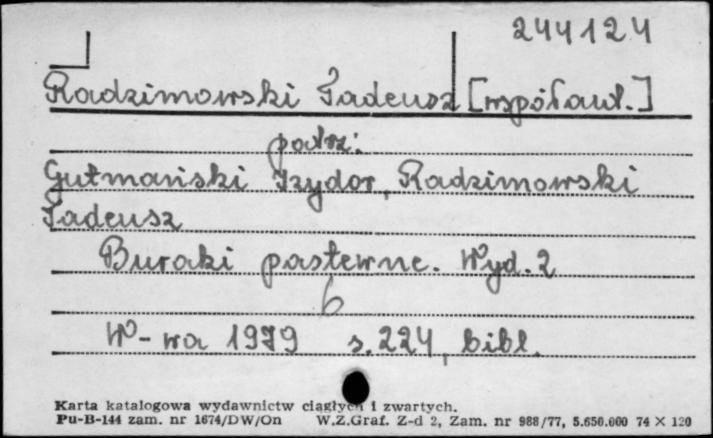 244124
Radzimowski Tadeusz [współaut.]
patrz:
Gutmański Izydor, Radzimowski
Tadeusz
Buraki pastewne. Wyd. 2
6
W-wa 1979 s. 224, bibl.
Karta katalogowa wydawnictw ciągłych i zwartych.
Pu-B-144 zam. nr 1674/DW/On W.Z.Graf. Z-d 2, Zam. nr 988/77, 5.650.000 74 X 120